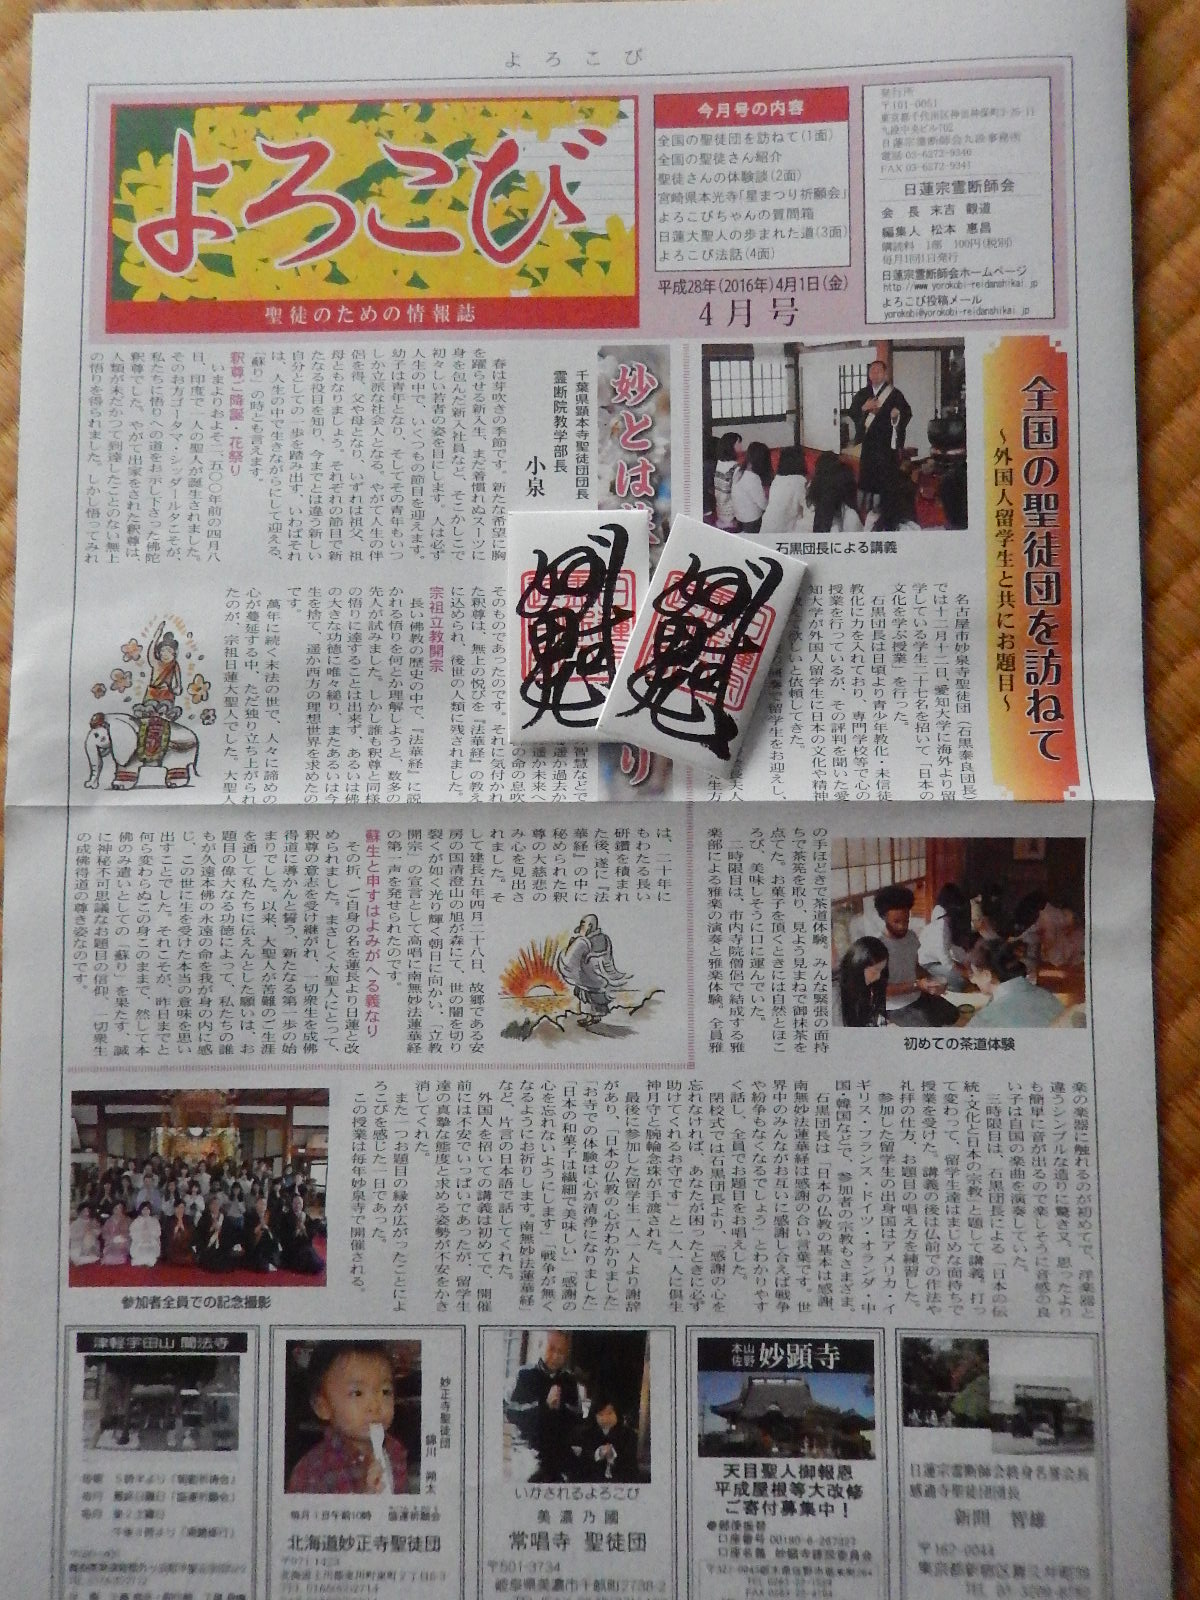 よろこび
よろこび
聖徒のための情報誌
今月号の内容
全国の聖徒団を訪ねて(1面)
全国の聖徒さん紹介
聖徒さんの体験談(2面)
宮崎県本光寺「星まつり祈願会」
よろこびちゃんの質問箱
日蓮大聖人の歩まれた道(3面)
よろこび法話(4面)
平成28年(2016年)4月1日(金)
4月号
発行所
〒101-0051
日蓮宗霊断師会九段事務所
電話 03-6272-9340
FAX 03-6272-9341
日蓮宗霊断師会
会長 末吉
編集人 松本 恵昌
購読料 1部 100円(税別)
毎月1回1日発行
日蓮宗霊断師会ホームページ
http://www.yorokobi-reidanshikai.jp
よろこび投稿メール
yorokobi@yorokobi-reidanshikai.jp
全国の聖徒団を訪ねて
〜外国人留学生と共にお題目〜
石黒団長による講義
名古屋市妙泉寺聖徒団(石黒泰良団長)
では十二月十二日、愛知大学に海外より留
学している学生二十七名を招いて「日本の
文化を学ぶ授業」を行った。
石黒団長は日頃より青少年教化・未信徒
教化に力を入れており、専門学校等で心の
授業を行っているが、その評判を聞いた愛
知大学が外国人留学生に日本の文化や精神
の手ほどきで茶道体験。みんな緊張の面持
ちで茶筅を取り、見よう見まねで御抹茶を
点てた。お菓子を頂くときには自然とほこ
ろび、美味しそうに口に運んでいた。
二時限目は、市内寺院僧侶で結成する雅
楽部による雅楽の演奏と雅楽体験。全員雅
初めての茶道体験
楽の楽器に触れるのが初めてで、洋楽器と
違うシンプルな造りに驚き又、思ったより
も簡単に音が出るので楽しそうに音感の良
い子は自国の楽曲を演奏していた。
三時限目は、石黒団長による「日本の伝
統・文化と日本の宗教」と題して講義。打っ
て変わって、留学生達はまじめな面持ちで
授業を受けた。講義の後は仏前での作法や
礼拝の仕方、お題目の唱え方を練習した。
参加した留学生の出身国はアメリカ・イ
ギリス・フランス・ドイツ・オランダ・中
国・韓国などで、参加者の宗教もさまざま。
石黒団長は「日本の仏教の基本は感謝。
南無妙法蓮華経は感謝の合い言葉です。世
界中のみんながお互いに感謝し合えば戦争
や紛争もなくなるでしょう」とわかりやす
く話し、全員でお題目をお唱えした。
閉校式では石黒団長より、「感謝の心を
忘れなければ、あなたが困ったときに必ず
助けてくれるお守です」と一人一人に倶生
神月守と腕輪念珠が手渡された。
最後に参加した留学生一人一人より謝辞
があり、「日本の仏教の心がわかりました」
「お寺での体験は心が清浄になりました」
「日本の和菓子は繊細で美味しい」「感謝の
心を忘れないようにします」「戦争が無く
なるようにお祈りします。南無妙法蓮華経」
など、片言の日本語で話してくれた。
外国人を招いての講義は初めてで、開催
前には不安でいっぱいであったが、留学生
達の真摯な態度と求める姿勢が不安をかき
消してくれた。
また一つお題目の縁が広がったことによ
ろこびを感じた一日であった。
この授業は毎年妙泉寺で開催される。
参加者全員での記念撮影
妙とは
千葉県顕本寺聖徒団団長
霊断院教学部長
小泉
春は芽吹きの季節です。新たな希望に胸
を躍らせる新入生、まだ着慣れぬスーツに
身を包んだ新入社員など、そこかしこで
初々しい若者の姿を目にします。人は必ず
人生の中で、いくつもの節目を迎えます。
幼子は青年となり、そしてその青年もいつ
しか立派な社会人となる。やがて人生の伴
侶を得、父や母となり、いずれは祖父、祖
母ともなりましょう。それぞれの節目で新
たなる役目を知り、今までとは違う新しい
自分としての一歩を踏み出す。いわばそれ
は、人生の中で生きながらにして迎える、
「蘇り」の時とも言えます。
釈尊ご降誕・花祭り
いまよりおよそ二、五〇〇年前の四月八
日、印度で一人の聖人が誕生されました。
そのお方ゴータマ・シッダールタこそが、
私たちに悟りへの道をお示し下さった佛陀
釈尊でした。やがて出家をされた釈尊は、
人類が未だかつて到達したことのない無上
の悟りを得られました。しかし悟ってみれ
そのものであったのです。それに気付かれ
た釈尊は、無上の悦びを『法華経』の教え
に込められ、後世の人類に残されました。
宗祖立教開宗
長い佛教の歴史の中で、『法華経』に説
かれる悟りを何とか理解しようと、数多の
先人が試みました。しかし誰も釈尊と同様
の悟りに達することは出来ず、あるいは佛
の大きな功徳に唯々縋り、またあるいは今
生を捨て、遥か西方の理想世界を求めたの
です。
萬年に続く末法の世で、人々に諦めの
心が蔓延する中、ただ独り立ち上がられ
たのが、宗祖日蓮大聖人でした。大聖人
は、二十年に
もわたる長い
研鑽を積まれ
た後、遂に『法
華経』の中に
秘められた釈
尊の大慈悲の
み心を見出さ
れました。そ
して建長五年四月二十八日、故郷である安
房の国清澄山の旭が森にて、世の闇を切り
裂くが如く光り輝く朝日に向かい、「立教
開宗」の宣言として高唱に南無妙法蓮華経
の第一声を発せられたのです。
蘇生と申すはよみがへる義なり
その折、ご自身の名を蓮長より日蓮と改
められました。まさしく大聖人にとって、
釈尊の意志を受け継がれ、一切衆生を成佛
得道に導かんと誓う、新たなる第一歩の始
まりでした。以来、大聖人が苦難のご生涯
を通して私たちに伝えんとした願いは、お
題目の偉大なる功徳によって、私たちの誰
もが久遠本佛の永遠の命を我が身の内に感
じ、この世に生を受けた本当の意味を思い
出すことでした。それこそが、昨日までと
何ら変わらぬこの身このままで、然して本
佛のみ遣いとしての「蘇り」を果たす、誠
に神秘不可思議なお題目の信仰、一切衆生
の成佛得道の尊き姿なのです。
津軽宇田山 聞法寺
妙正寺聖徒団
北海道妙正寺聖徒団
〒071-1423
いかされるよろこび
美濃乃國
常唱寺 聖徒団
〒501-3734
岐阜県美濃市
本山
佐野
妙顕寺
天目聖人御報恩
平成屋根等大改修
ご寄付募集中!
日蓮宗霊断師会終身名誉会長
感通寺聖徒団団長
新間 智雄
〒162-0044